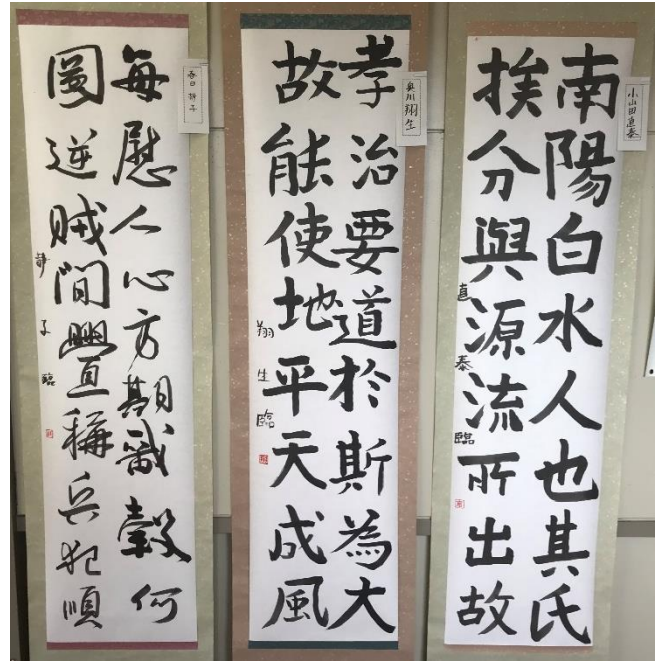 小山田直泰
南陽白水人也其氏
挨分與源流所出故
直泰臨
奥川翔生
孝治要道於斯為大
故能使地平天成風
翔生臨
静子
毎慰人心方期戩穀何
圖逆賊間舋稱兵犯順
静子臨